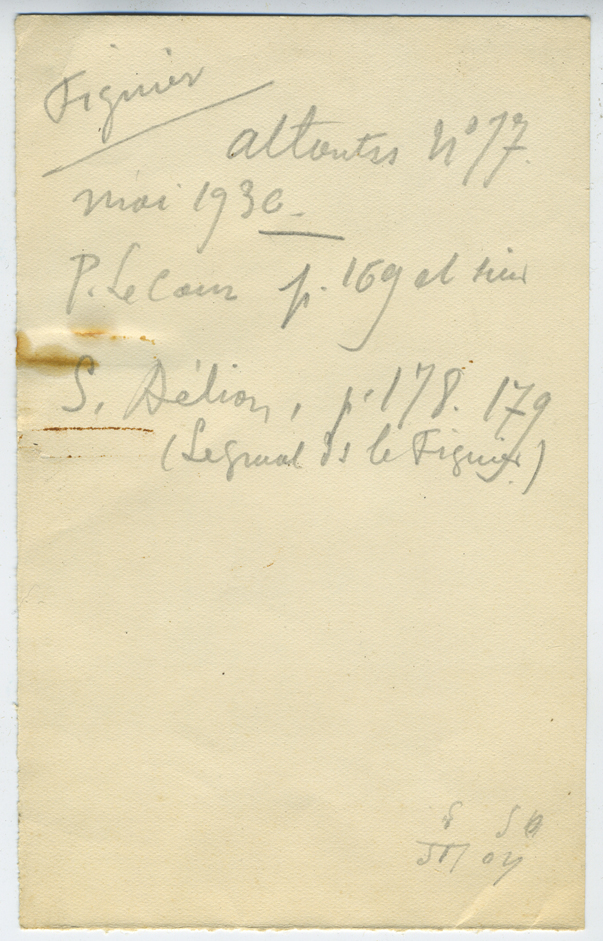 Figuier
altantis N° 17.
mai 1930.
P. Le Cour p. 169 et suiv
S. Délion, p. 178. 179
(Legrual ds le Figuier)